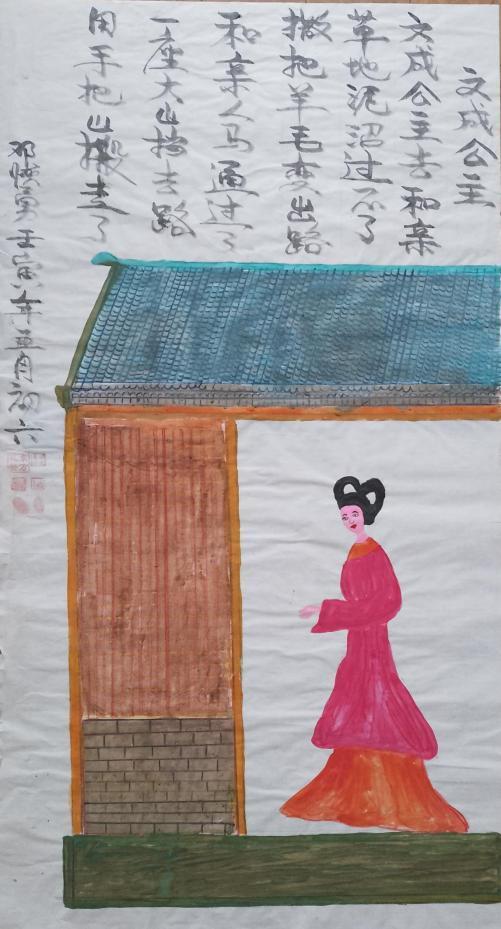 文成公主
文成公主去和亲
草地泥沼过不了
撒把羊毛变出路
和亲人马通过了
一座大山挡去路
用手把山搬走了
邓 男壬寅年五月初六